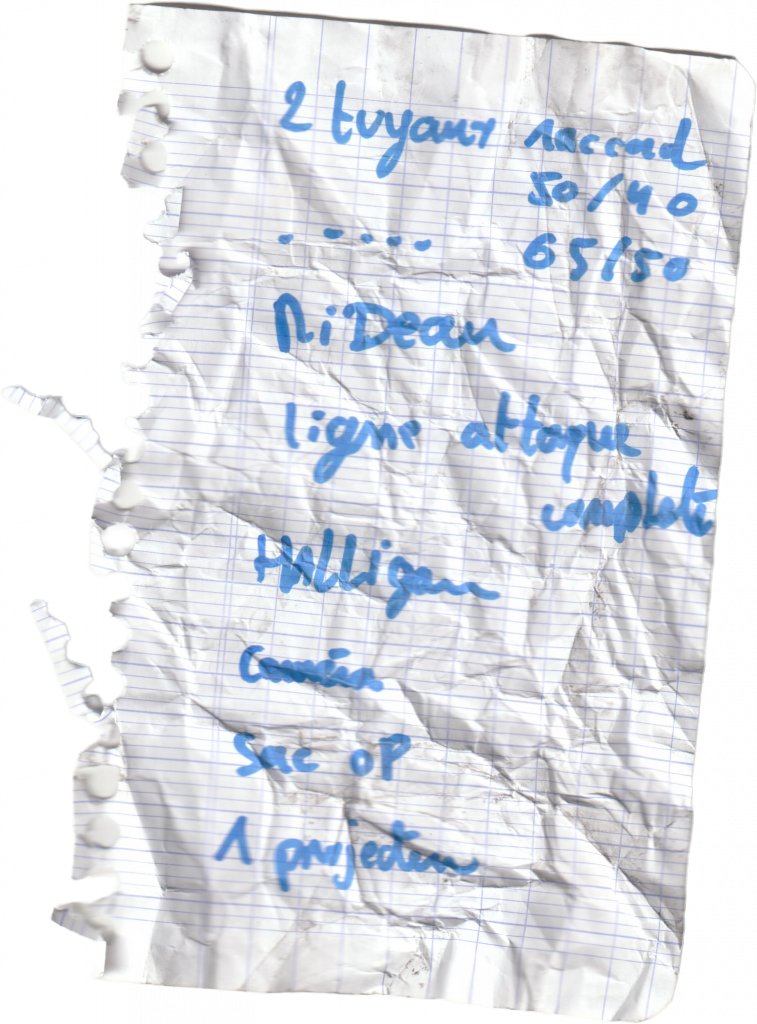 2 tuyaux raccord
50/40
. . . . . 65/50
RiDeau
ligne attaque
complète
Halligan
Caméra
Sac OP
1 projecteur